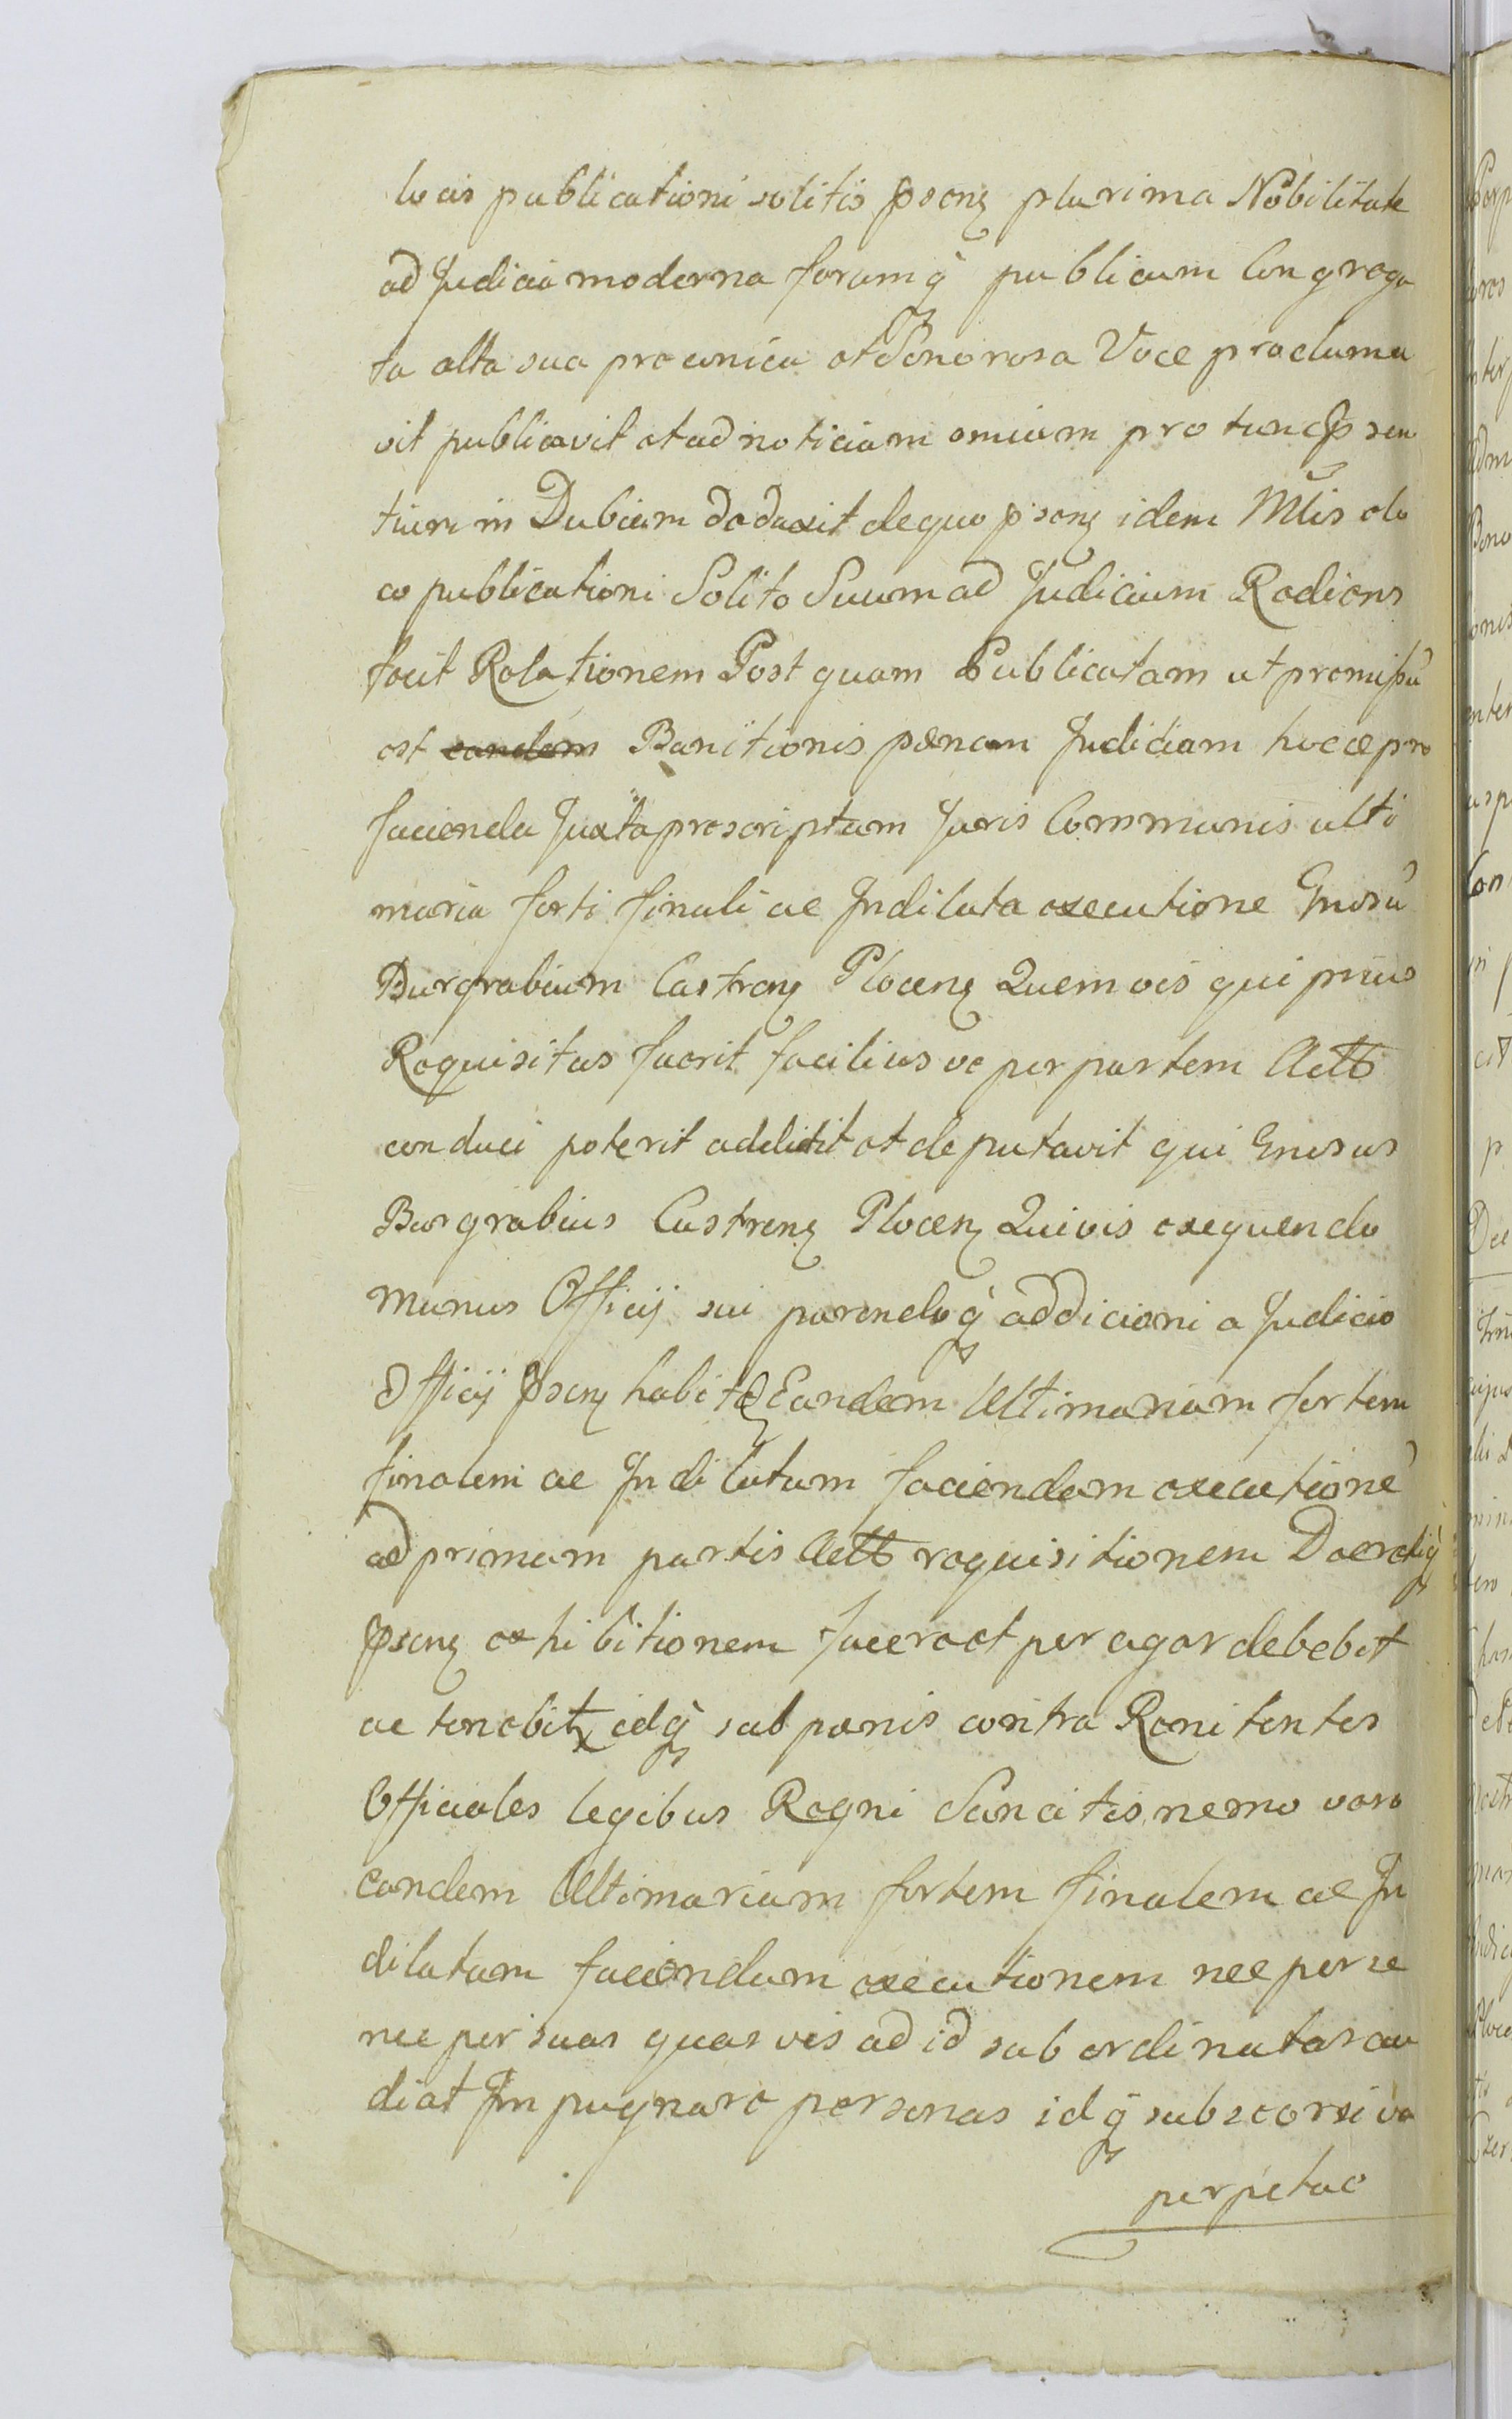 locis publicationi solitis pñsenę plurima Nobilitate
ad Judicia moderna forumq̀ publicum Congrega
ta alta sua preconica et Sonorosa Voce proclama
vit publicavit et ad noticiam omium pro tunc pñsen
tium in Dubium deduxit de quo pñsenę idem Mlis olo
co publicationi Solito Suum ad Judicium Rediens
fecit Relationem Post quam Publicatam ut premissũ
est eandem Banitionis pœnam Judicium hocce pro
facienda Juxta prescriptum Juris Communis ulti
maria forti finali ac Indilata executione Gnosũ
Burgrabium Castrenę Plocenę Quemvis qui prius
Requisitus fuerit facilius ve per partem Actt
conduci poterit addidit et deputavit qui Gnosus
Burgrabius Castrenę Plocenę Quivis exequendo
munus Officij sui parendoq̀ addicioni a Judicio
Officij pñsenę habitę Eandem Ultimariam fortem
finalem ac Indilatam faciendam executionẽ
ad primam partis Actt requisitionem Decretiq̀
pñsenę exhibitionem facere et per agere debebit
ac tenebitr idq̀ sub pœnis contra Renitentes
Officiales legibus Regni Sancitis nemo vero
eandem Ultimariam fortem finalem ac In
dilatam faciendam executionem nec per se
nec per suas quasvis ad id sub ordinatas au
diat Impugnare personas idq̀ sub seorsiva
perpetuo